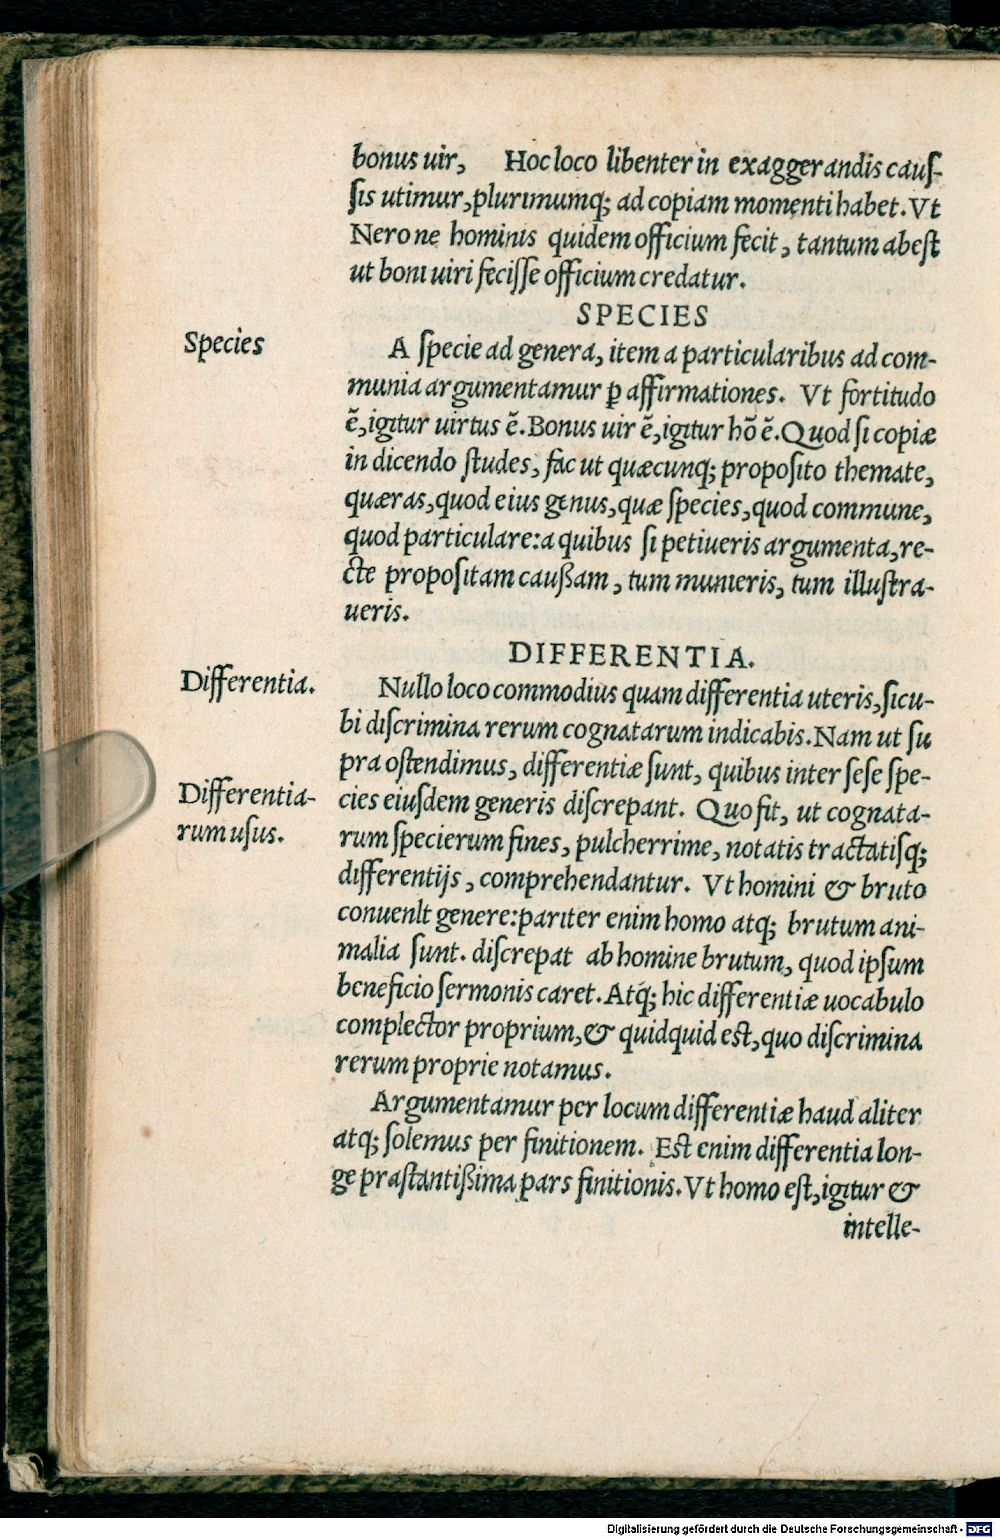 bonus uir, Hoc loco libenter in exaggerandis cauſ-
ſis utimur, plurimumq; ad copiam momenti habet. Vt
Nero ne hominis quidem officium fecit, tantum abeſt
ut boni uiri feciſſe officium credatur.
SPECIES
Species
A ſpecie ad genera, item a particularibus ad com-
munia argumentamur ꝑ affirmationes. Vt fortitudo
ẽ, igitur uirtus ẽ. Bonus uir ẽ, igitur hõ ẽ. Quod ſi copiæ
in dicendo ſtudes, fac ut quæcunq; propoſito themate,
quæras, quod eius genus, quæ ſpecies, quod commune,
quod particulare: a quibus ſi petiueris argumenta, re-
cte propoſitam caußam, tum munieris, tum illuſtra-
ueris.
DIFFERENTIA.
Differentia.
Nullo loco commodius quam differentia uteris, ſicu-
bi diſcrimina rerum cognatarum indicabis. Nam ut ſu
pra oſtendimus, differentiæ ſunt, quibus inter ſeſe ſpe-
Differentia-
rum uſus.
cies eiuſdem generis diſcrepant. Quo fit, ut cognata-
rum ſpecierum fines, pulcherrime, notatis tractatiſq;
differentijs, comprehendantur. Vt homini & bruto
conuenIt genere: pariter enim homo atq; brutum ani-
malia ſunt. diſcrepat ab homine brutum, quod ipſum
beneficio ſermonis caret. Atq; hic differentiæ uocabulo
complector proprium, & quidquid eſt, quo diſcrimina
rerum proprie notamus.
Argumentamur per locum differentiæ haud aliter
atq; ſolemus per finitionem. Eſt enim differentia lon-
ge præſtantißima pars finitionis. Vt homo eſt, igitur &
intelle-
Digitalisierung gefördert durch die Deutsche Forschungsgemeinschaft - DFG